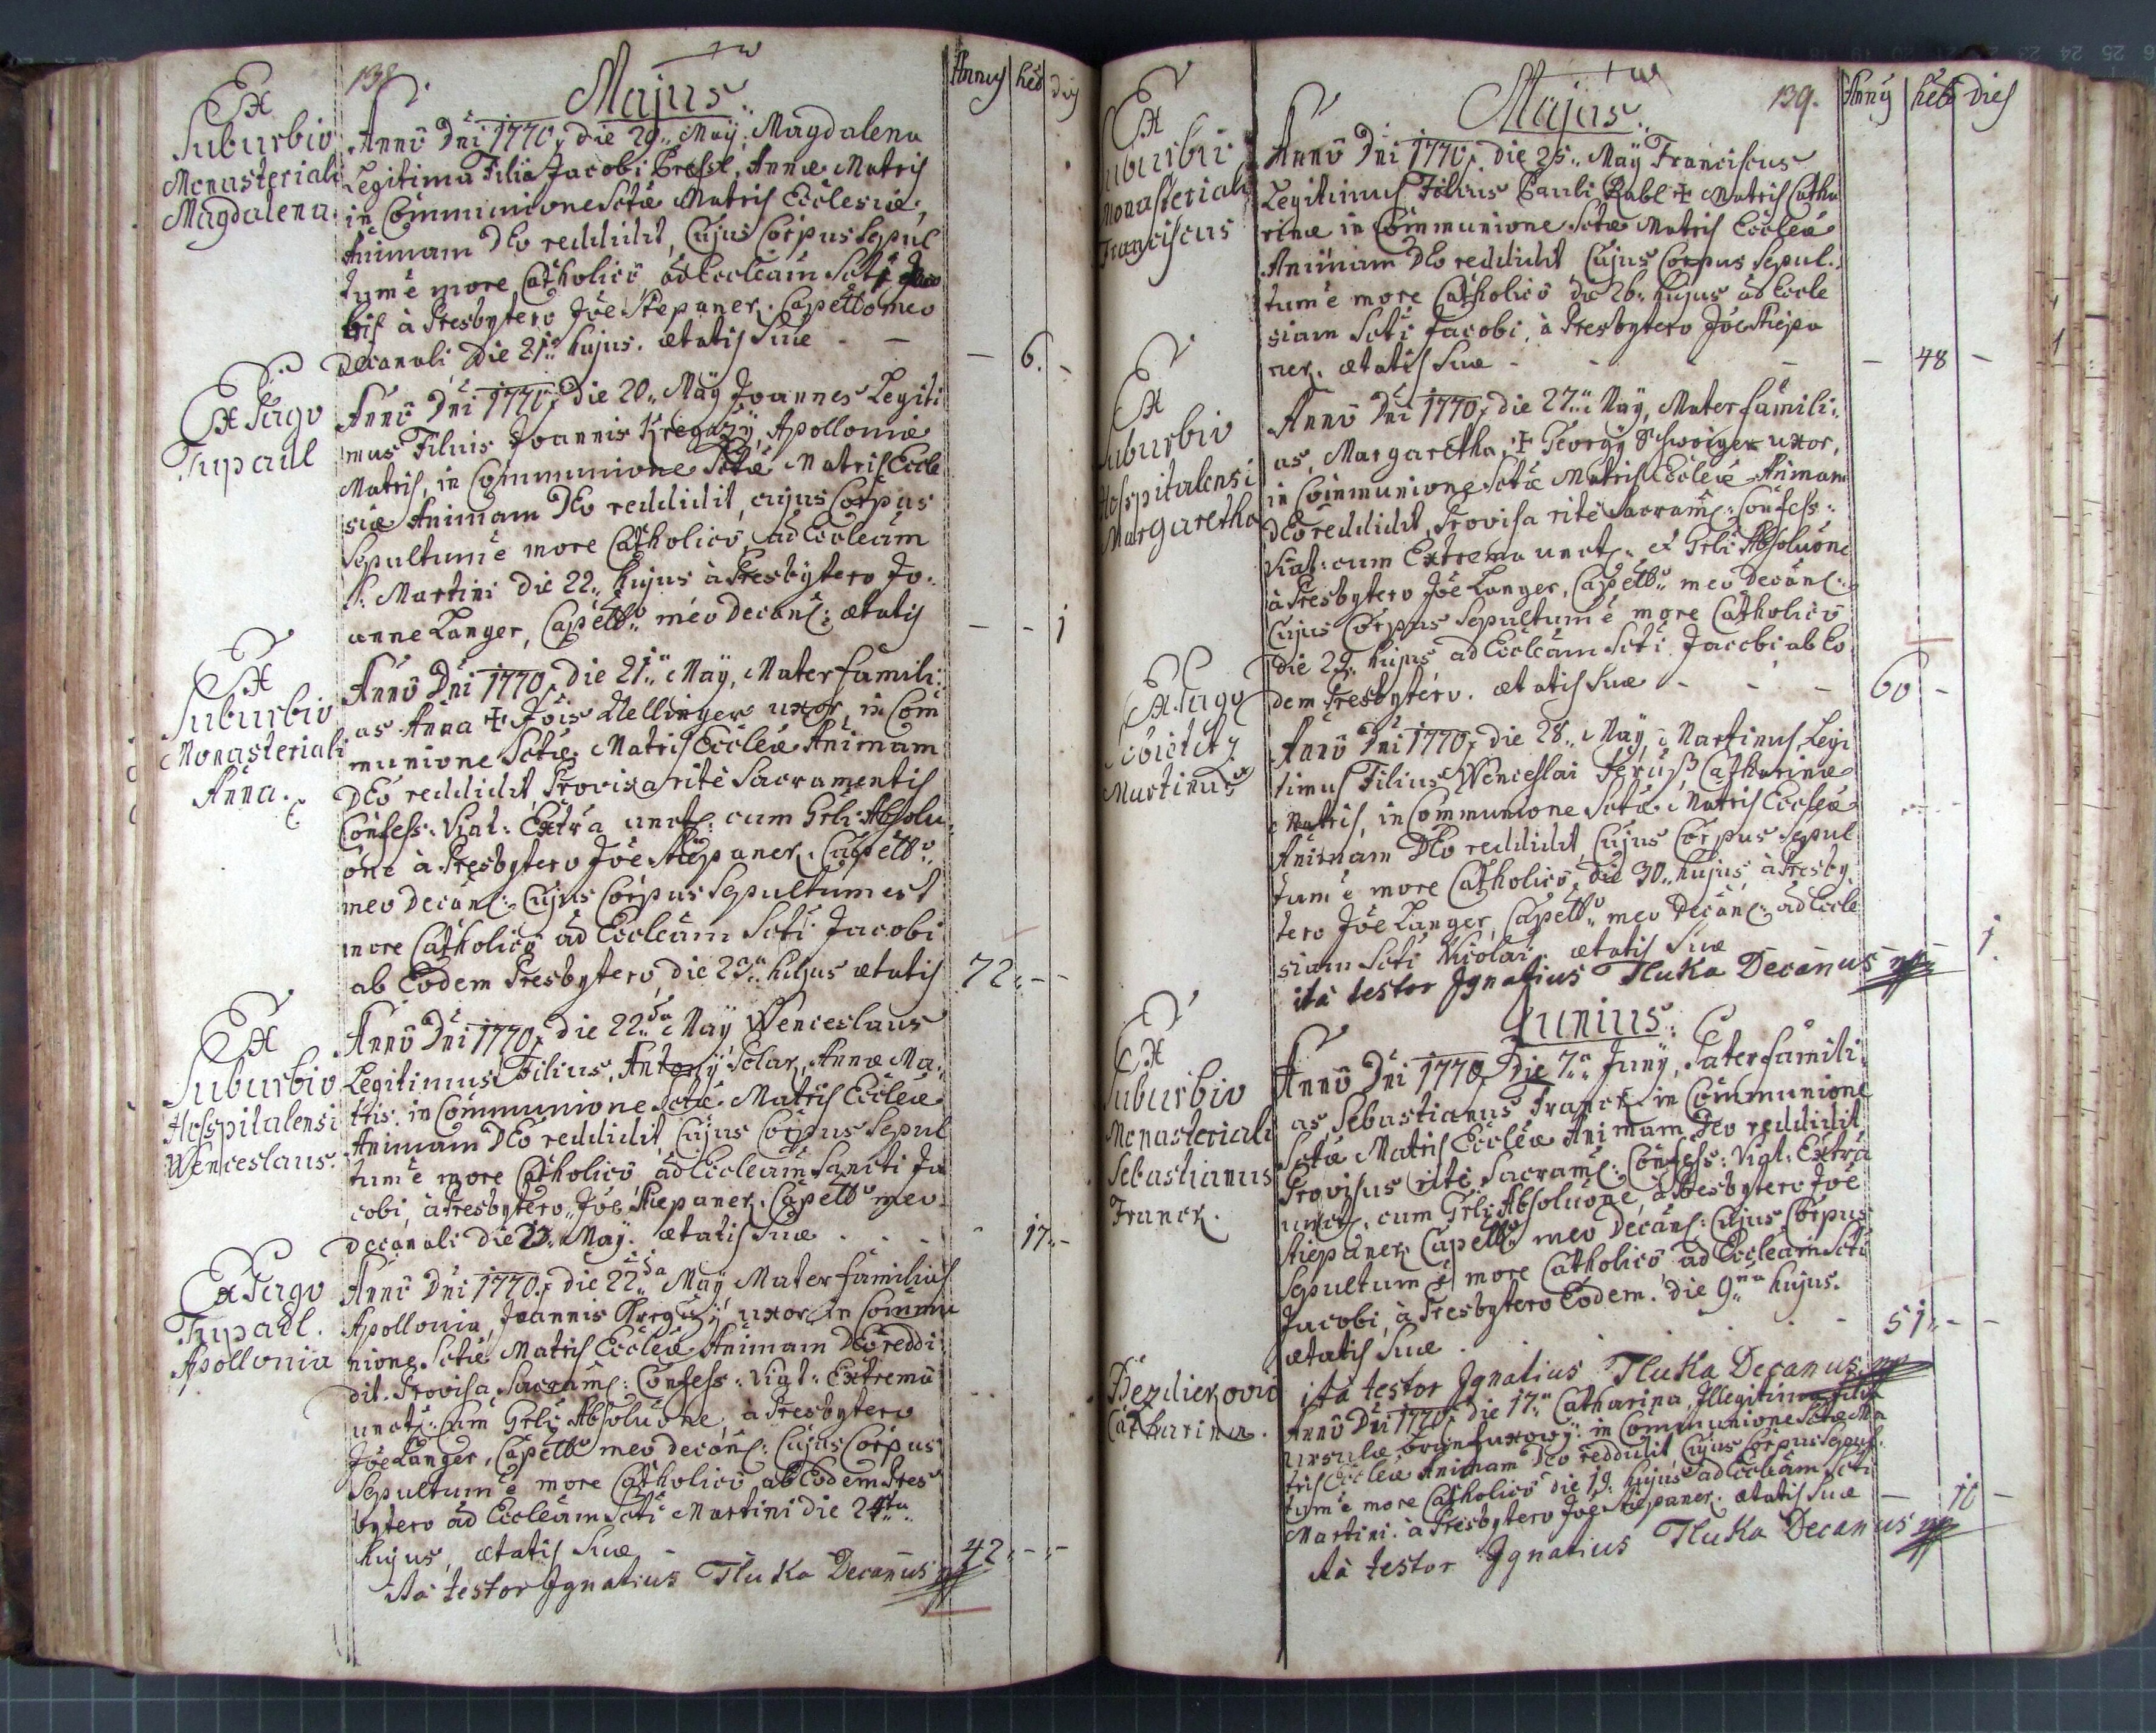 138.
Majus.
Annus heb dies
Ex
Suburbio
Monasteriali
Magdalena.
Anno Dni 1770, die 20. Maÿ, Magdalena
Legitima Filia Jacobi Annæ Matris
in Communione Sctæ Matris Ecclesiæ,
Animam DEo reddidit, Cujus Corpus Sepul
tum ẽ more Catholico ad Eccleam Scti Jaco
bis à Presbytero Joe Stiepaner. Capello meo
Decanali, Die 21. hujus. ætatis Suæ - - - 6. -
Ex Pago
Tupadl
Anno Dni 1770, die 20. Maÿ Joannes Legiti
mus Filius Joannis Apolloniæ
Matris, in Communione Sctæ Matris Eccle
siæ Animam DEo reddidit, cujus Corpus
Sepultum ẽ more Catholico, ad Eccleam
S. Martini Die 22. hujus à Presbÿtero Jo-
anne Langer, Capello meo Decanl: ætatis - - 1
Ex
Suburbio
Monasteriali
Anna.
Anno Dni 1770, die 21. Maÿ, Mater famili-
as Anna ✝ Jois uxor, in Com
munione Sctæ Matris Eccleæ Animam
DEo reddidit Provisa ritè Sacramentis
Confess: Viat: Extra unct: cum Grli Absolu
one à Presbytero Joe Stiepaner. Capello
meo Decanl: Cujus Corpus Sepultum est
more Catholico ad Eccleam Scti Jacobi
ab Eodem Presbytero, die 23. hujus ætatis 72. - -
Ex
Suburbio
Hospitalensi
Wenceslaus.
Anno Dni 1770, die 22da Maÿ Wenceslaus
Legitimus Filius, Antonÿ Solar, Annæ Ma-
tris: in Communione Sctæ Matris Eccleæ
Animam DEo reddidit, Cujus Corpus Sepul
tum ẽ more Catholico, ad Eccleam Sancti Ja
cobi, à Presbytero, Joe Stiepaner. Capello meo
Decanali die 23. Maÿ. ætatis Suæ - - - 17. -
Ex Pago
Tupadl.
Apollonia
Anno Dni 1770, die 22da Maÿ Mater familias
Apollonia, Joannis uxor in Commu
nione Sctæ Matris Eccleæ Animam DEo reddi
dit. Provisa Sacraml: Confess: Viat: Extrema
unct: cum Grli Absoluone, à Presbytero
Joe Langer, Capello meo decanl: Cujus Corpus
Sepultum ẽ more Catholico ab Eodem Pres
bytero ad Eccleam Scti Martini die 24ta
hujus, ætatis Suæ - 42. - -
ità testor Ignatius Tluka Decanus mp
139.
Majus.
Anny heb dies
Ex
Suburbii
Monasteriali
Franciscus
Anno Dni 1770, die 25. Maÿ Franciscus
Legitimus Filius Pauli ✝ Matris Catha
rinæ in Communione Sctæ Matris Eccleæ
Animam DEo reddidit Cujus Corpus Sepul-
tum ẽ more Catholico die 26. hujus ad Eccle
siam Scti Jacobi, à Presbytero Joe Stiepa
ner, ætatis Suæ - - - - 48 -
Ex
Suburbio
Hospitalensi
Margaretha
Anno Dni 1770, die 27. Maÿ, Mater famili-
as, Margaretha, ✝ Georgÿ Schwoiger uxor,
in Communione Sctæ Matris Eccleæ Animam
DEo reddidit, Provisa ritè Sacraml: Confess:
Viat: cum Extrema unct: et Grli Absoluone
à Presbytero Joe Langer, Capello meo Decanl:
Cujus Corpus Sepultum ẽ more Catholico
die 29. hujus ad Eccleam Scti Jacobi ab Eo
dem Presbytero. ætatis Suæ - - - 60 -
Ex Pago
Martinus
Anno Dni 1770, die 28. Maÿ, Martinus, Legi
timus Filius Wenceslai Catharinæ
Matris, in Communione Sctæ Matris Eccleæ
Animam DEo reddidit Cujus Corpus Sepul
tum ẽ more Catholico, die 30. hujus, à Presby-
tero Joe Langer, Capello meo Decanl: ad Eccle
siam Scti Nicolai. ætatis Suæ - - - 1.
ità testor Ignatius Tluka Decanus mp
Junius.
Ex
Suburbio
Monasteriali
Sebastianus
Franck.
Anno Dni 1770, Die 7. Junÿ, Paterfamili-
as Sebastianus Franck in Communione
Sctæ Matris Eccleæ Animam Deo reddidit
Provisus ritè, Sacraml: Confess: Viat: Extra
unct: cum Grli Absoluone, à Presbytero Joe
Stiepaner. Capello meo Decanl: Cujus Corpus
Sepultum ẽ more Catholico ad Eccleam Scti
Jacobi, à Presbytero Eodem. die 9na hujus.
ætatis Suæ - - - 51. - -
ità testor Ignatius Tluka Decanus mp
Catharina.
Anno Dni 1770, die 17. Catharina, Illegitima filia
Ursulæ in Communione Sctæ Ma
tris Eccleæ Animam Deo reddidit Cujus Corpus Sepul-
tum ẽ more Catholico die 19. hujus ad Eccleam Scti
Martini. à Presbytero Joe Stiepaner. ætatis Suæ -
ità testor Ignatius Tluka Decanus mp